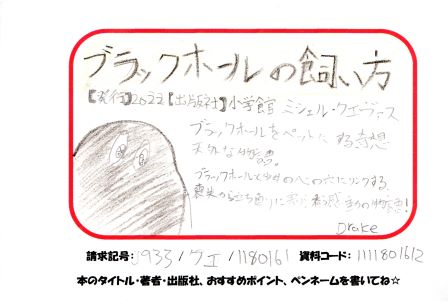 ブラックホールの飼い方
【発行】2022【出版社】小学館 ミシェル・クエヴァス
ブラックホールをペットにする奇想
天外な物語。
ブラックホールと少女の心の穴にリンクする
喪失の立ち直りに 感動の物語!
Drake
請求記号: J933/クエ/1180161 資料コード: 1111801612
本のタイトル・著者・出版社、おすすめポイント、ペンネームを書いてね☆